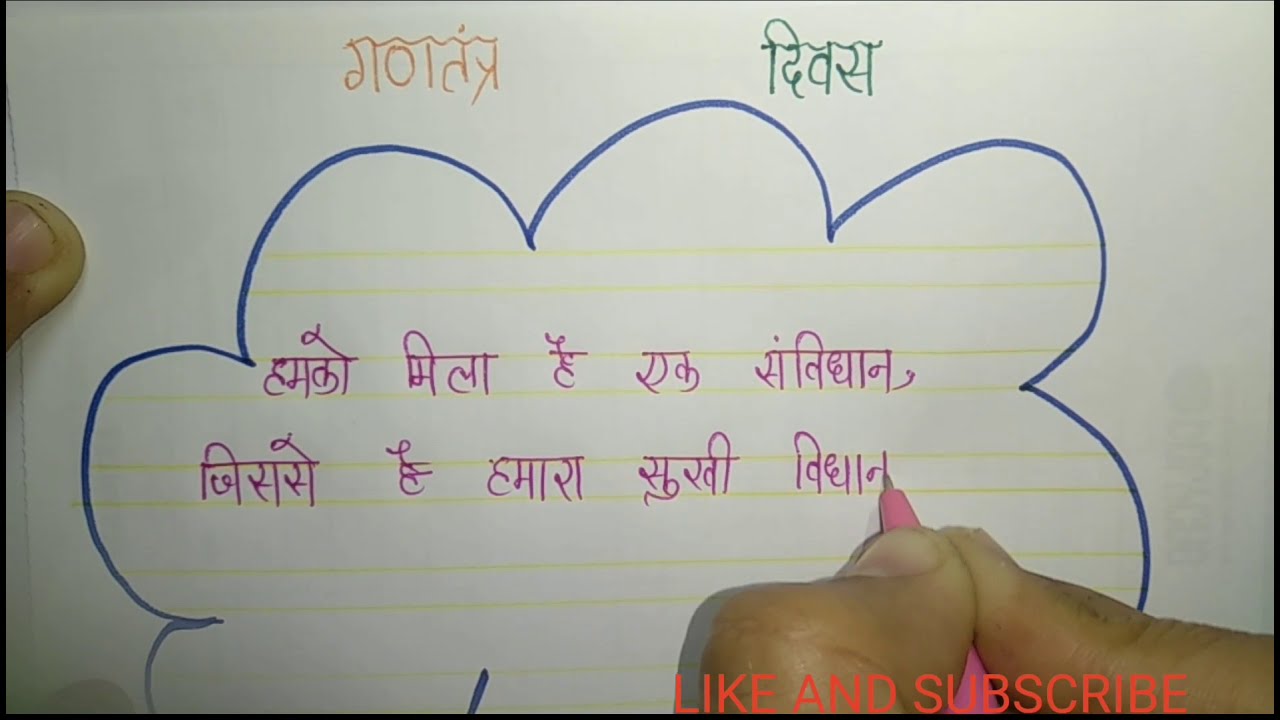 गणतंत्र दिवस
हमको मिला है एक संविधान,
जिससे है हमारा सुखी विधान
LIKE AND SUBSCRIBE